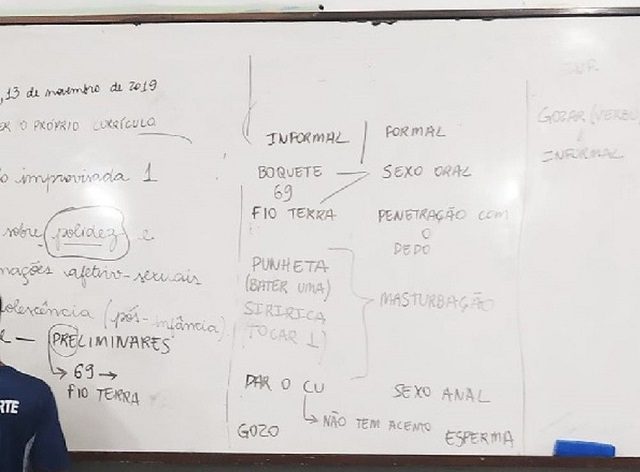 , 13 de novembro de 2019
ER O PRÓPRIO CURRÍCULO
o improvisada 1
sobre polidez e
mações afetivo-sexuais
dolescência (pós-infância)
PRELIMINARES
69 →
FIO TERRA
INFORMAL
FORMAL
BOQUETE
SEXO ORAL
69
FIO TERRA
PENETRAÇÃO COM
O
DEDO
PUNHETA
(BATER UMA)
SIRIRICA
(TOCAR 1)
MASTURBAÇÃO
DAR O CU
SEXO ANAL
NÃO TEM ACENTO
GOZO
ESPERMA
GOZAR (VERBO)
É
INFORMAL
RTE